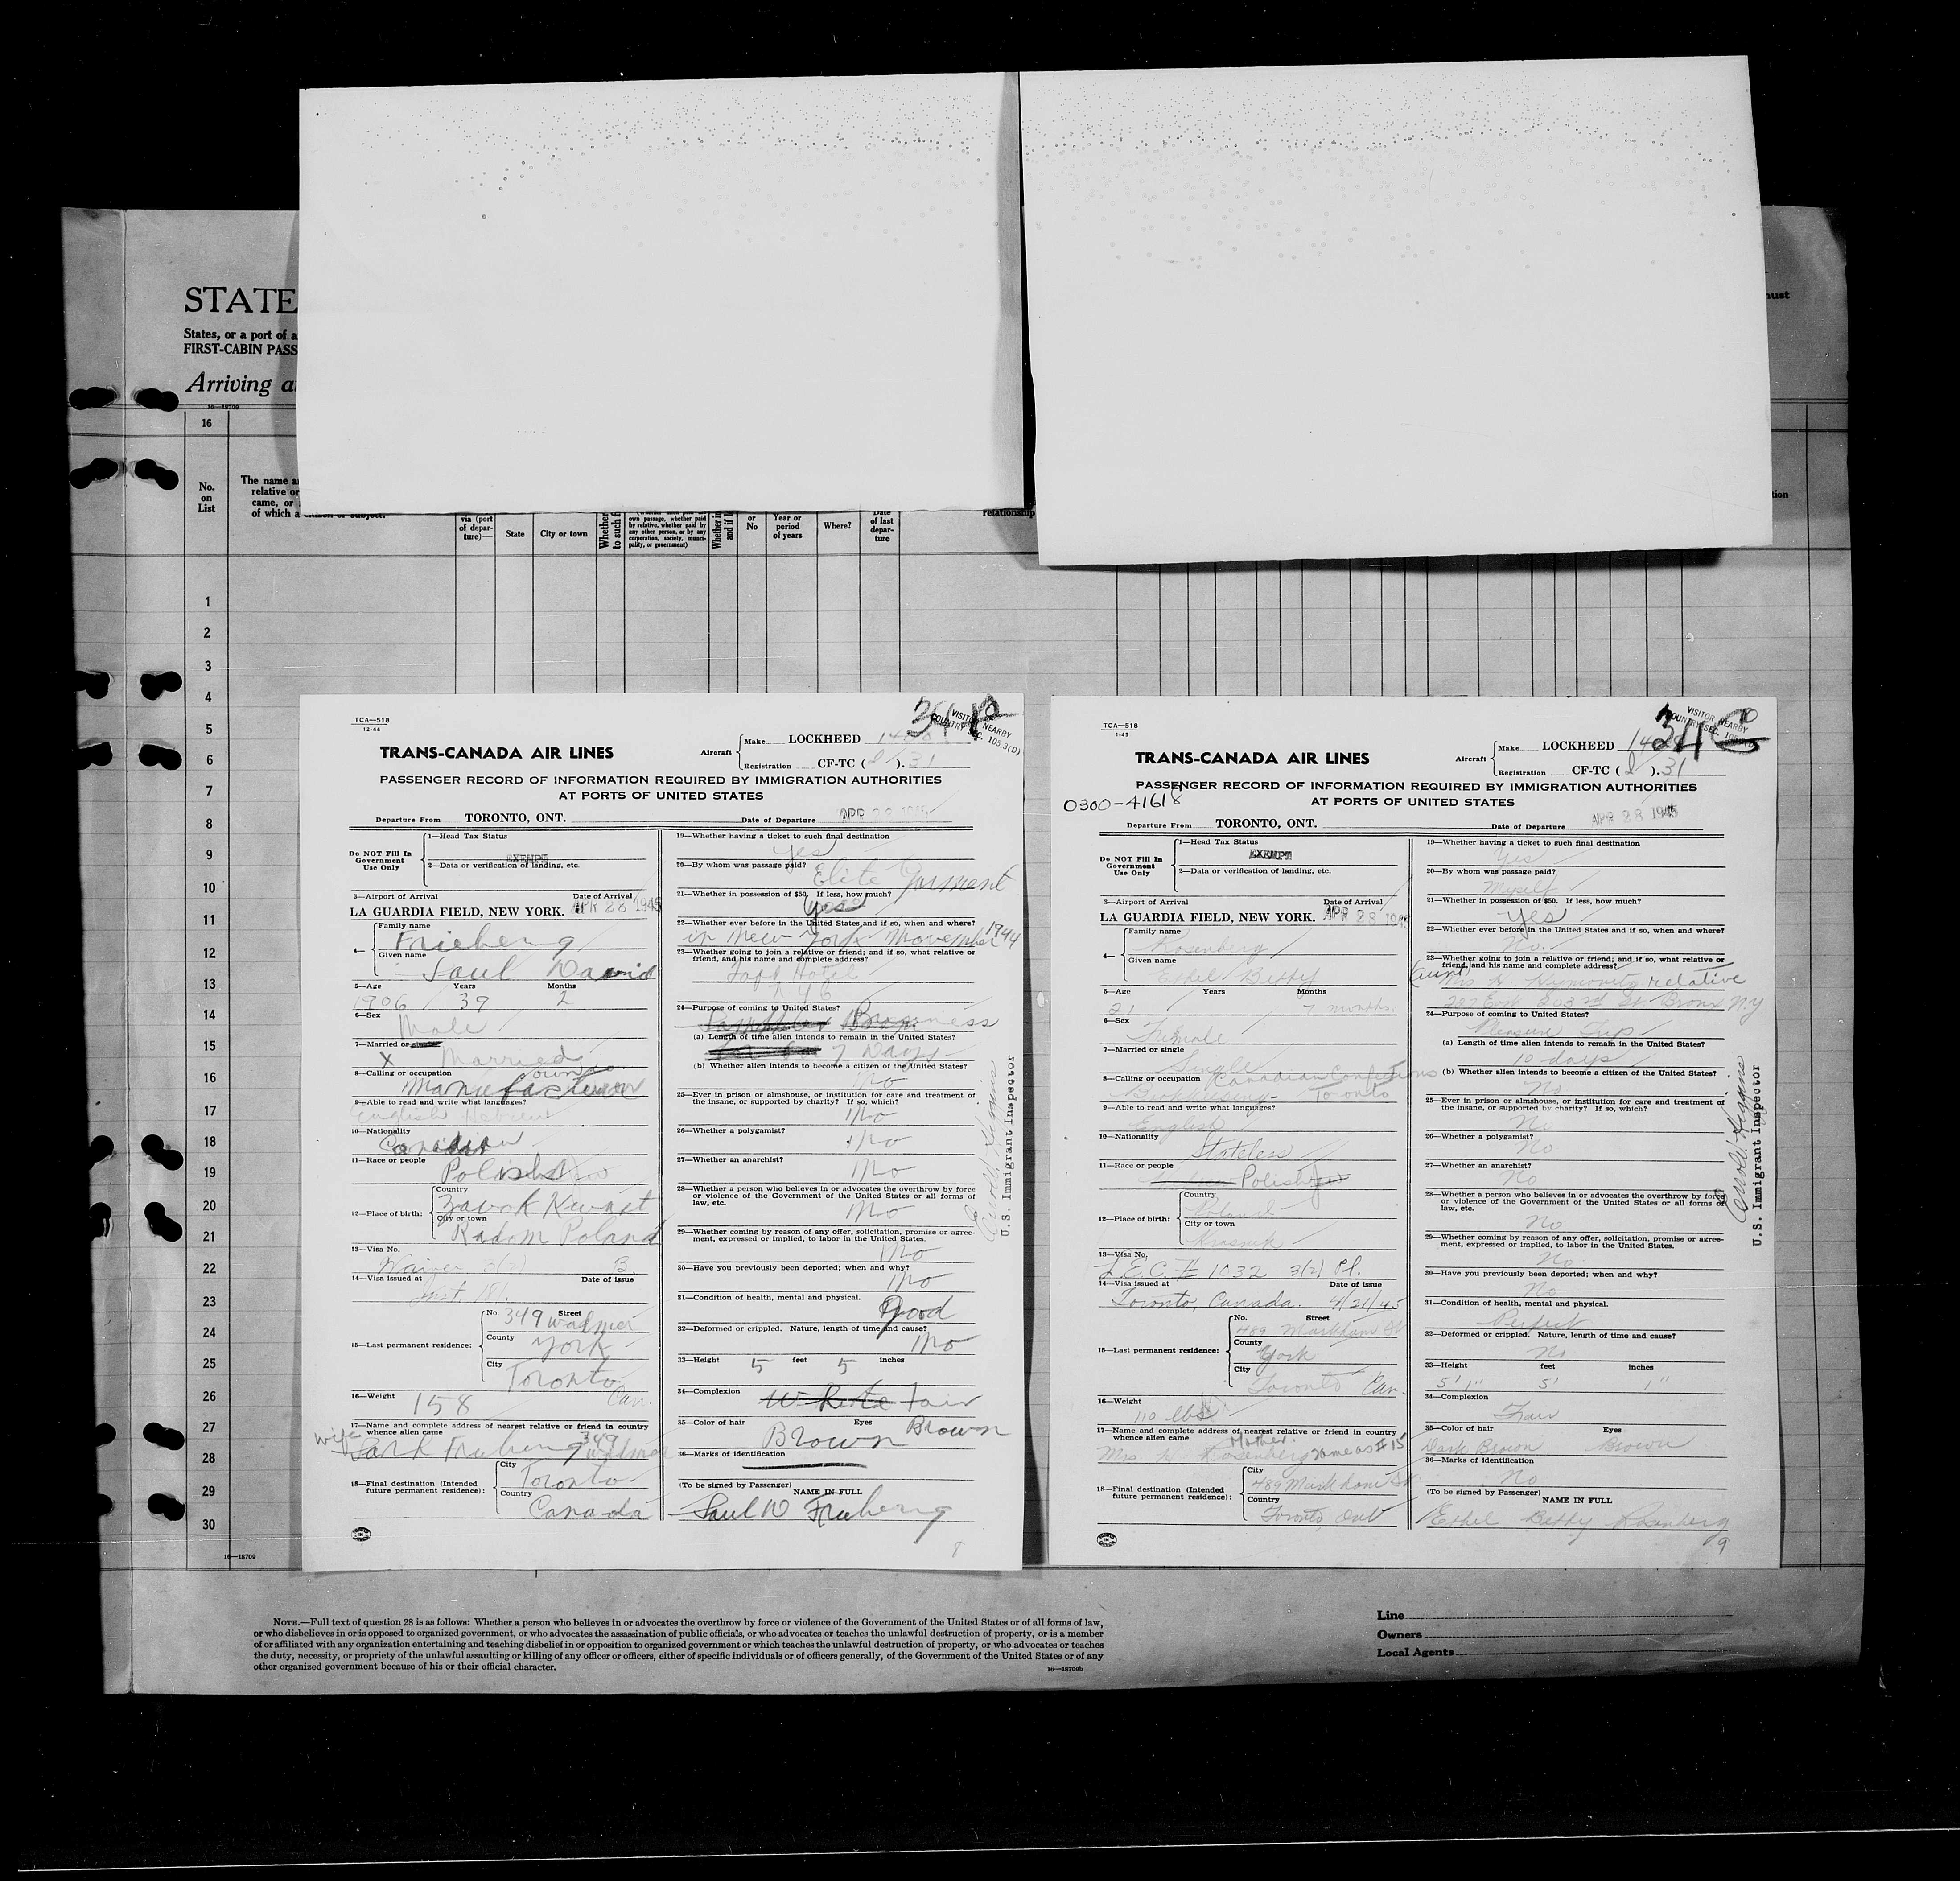 STATE
States, or a port of a
FIRST-CABIN PASS
Arriving a
16—18709
16
No.
on
List
The name a
relative or
came, or
of which a citizen or subject.
via (port
of depar-
ture)—
State
City or town
Whether
to such f
own passage, whether paid
by relative, whether paid by
any other person, or by any
corporation, society, munici-
pality, or government)
Whether i
and if l
or
No
Year or
period
of years
Where?
Date
of last
depar-
ture
relationship
must
tion
1
2
3
4
5
6
7
8
9
10
11
12
13
14
15
16
17
18
19
20
21
22
23
24
25
26
27
28
29
30
16—18709
TCA—518
12-44
VISITOR NEARBY
COUNTRY SEC. 105.3(D)
TRANS-CANADA AIR LINES
Aircraft
Make LOCKHEED
Registration CF-TC ( ). 31
PASSENGER RECORD OF INFORMATION REQUIRED BY IMMIGRATION AUTHORITIES
AT PORTS OF UNITED STATES
Departure From TORONTO, ONT. Date of Departure APR 28 1945
Do NOT Fill In
Government
Use Only
1—Head Tax Status
EXEMPT
2—Data or verification of landing, etc.
3—Airport of Arrival Date of Arrival
LA GUARDIA FIELD, NEW YORK. APR 28 1945
4—
Family name
Frieberg
Given name
Saul David
5—Age Years Months
1906 39 2
6—Sex
Male
7—Married or single
X Married
8—Calling or occupation own
Manufacturer
9—Able to read and write what languages?
English
10—Nationality
Canadian
11—Race or people
Polish
12—Place of birth:
Country
City or town
Radom Poland
13—Visa No.
Waiver
14—Visa issued at Date of issue
15—Last permanent residence:
No. Street
349 Walmer
County
York
City
Toronto
Can.
16—Weight
158
17—Name and complete address of nearest relative or friend in country
whence alien came
wife
349
18—Final destination (Intended
future permanent residence):
City
Toronto
Country
Canada
19—Whether having a ticket to such final destination
yes
20—By whom was passage paid?
Elite Garment
21—Whether in possession of $50. If less, how much?
yes
22—Whether ever before in the United States and if so, when and where?
in New York November 1944
23—Whether going to join a relative or friend; and if so, what relative or
friend, and his name and complete address?
Taft Hotel
24—Purpose of coming to United States?
Business
(a) Length of time alien intends to remain in the United States?
7 Days
(b) Whether alien intends to become a citizen of the United States?
No
25—Ever in prison or almshouse, or institution for care and treatment of
the insane, or supported by charity? If so, which?
No
26—Whether a polygamist?
No
27—Whether an anarchist?
No
28—Whether a person who believes in or advocates the overthrow by force
or violence of the Government of the United States or all forms of
law, etc.
No
29—Whether coming by reason of any offer, solicitation, promise or agree-
ment, expressed or implied, to labor in the United States.
No
30—Have you previously been deported; when and why?
No
31—Condition of health, mental and physical.
Good
32—Deformed or crippled. Nature, length of time and cause?
No
33—Height 5 feet 5 inches
34—Complexion White fair
35—Color of hair Eyes
Brown Brown
36—Marks of identification
(To be signed by Passenger)
NAME IN FULL
Saul D Frieberg
8
U.S. Immigrant Inspector
TCA—518
1-45
VISITOR NEARBY
COUNTRY SEC. 105.3(D)
TRANS-CANADA AIR LINES
Aircraft
Make LOCKHEED
Registration CF-TC ( ). 31
PASSENGER RECORD OF INFORMATION REQUIRED BY IMMIGRATION AUTHORITIES
0300-41618
AT PORTS OF UNITED STATES
Departure From TORONTO, ONT. Date of Departure APR 28 1945
Do NOT Fill In
Government
Use Only
1—Head Tax Status
EXEMPT
2—Data or verification of landing, etc.
3—Airport of Arrival Date of Arrival
LA GUARDIA FIELD, NEW YORK. APR 28 1945
4—
Family name
Rosenberg
Given name
Ethel Betty
5—Age Years Months
21 7 months
6—Sex
Female
7—Married or single
Single
8—Calling or occupation Canadian Confections
Bookkeeping Toronto
9—Able to read and write what languages?
English
10—Nationality
Stateless
11—Race or people
Polish
12—Place of birth:
Country
Poland
City or town
Krasnik
13—Visa No.
L.E.C. # 1032 3(2) Pl.
14—Visa issued at Date of issue
Toronto, Canada. 4/21/45
15—Last permanent residence:
No. Street
489 Markham St
County
York
City
Toronto Can.
16—Weight
110 lbs
17—Name and complete address of nearest relative or friend in country
whence alien came Mother.
Mrs Rosenberg same as # 15
18—Final destination (Intended
future permanent residence):
City
489 Markham St.
Country
Toronto, Ont
19—Whether having a ticket to such final destination
Yes
20—By whom was passage paid?
Myself
21—Whether in possession of $50. If less, how much?
Yes
22—Whether ever before in the United States and if so, when and where?
No.
23—Whether going to join a relative or friend; and if so, what relative or
friend, and his name and complete address?
(Aunt) Mrs Hymovitz relative
East 203rd St. Bronx N.Y
24—Purpose of coming to United States?
Pleasure Trip
(a) Length of time alien intends to remain in the United States?
10 days
(b) Whether alien intends to become a citizen of the United States?
No
25—Ever in prison or almshouse, or institution for care and treatment of
the insane, or supported by charity? If so, which?
No
26—Whether a polygamist?
No
27—Whether an anarchist?
No
28—Whether a person who believes in or advocates the overthrow by force
or violence of the Government of the United States or all forms of
law, etc.
No
29—Whether coming by reason of any offer, solicitation, promise or agree-
ment, expressed or implied, to labor in the United States.
No
30—Have you previously been deported; when and why?
No
31—Condition of health, mental and physical.
Perfect
32—Deformed or crippled. Nature, length of time and cause?
No
33—Height feet inches
5' 1" 5' 1"
34—Complexion
Fair
35—Color of hair Eyes
Dark Brown Brown
36—Marks of identification
No
(To be signed by Passenger)
NAME IN FULL
Ethel Betty Rosenberg
9
U.S. Immigrant Inspector
NOTE.—Full text of question 28 is as follows: Whether a person who believes in or advocates the overthrow by force or violence of the Government of the United States or of all forms of law,
or who disbelieves in or is opposed to organized government, or who advocates the assassination of public officials, or who advocates or teaches the unlawful destruction of property, or is a member
of or affiliated with any organization entertaining and teaching disbelief in or opposition to organized government or which teaches the unlawful destruction of property, or who advocates or teaches
the duty, necessity, or propriety of the unlawful assaulting or killing of any officer or officers, either of specific individuals or of officers generally, of the Government of the United States or of any
other organized government because of his or their official character.
16—18709b
Line
Owners
Local Agents